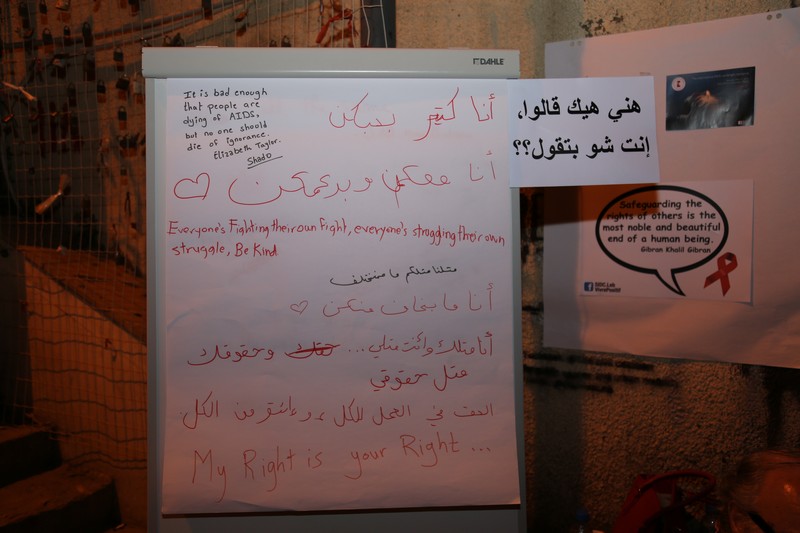 DAHLE
It is bad enough
that people are
dying of AIDS,
but no one should
die of ignorance.
Elizabeth Taylor.
Shado
أنا كتير بحبكن
أنا معكن وبدعمكن
Everyone's Fighting their own fight, everyone's struggling their own
struggle, Be Kind
متلنا متلكم ما منختلف
أنا ما بخاف منكن
أنا متلك وانت متلي... حقك وحقوقك
متل حقوقي
الحق في العمل للكل من الكل
My Right is your Right...
هني هيك قالوا،
إنت شو بتقول؟؟
Safeguarding the
rights of others is the
most noble and beautiful
end of a human being.
Gibran Khalil Gibran